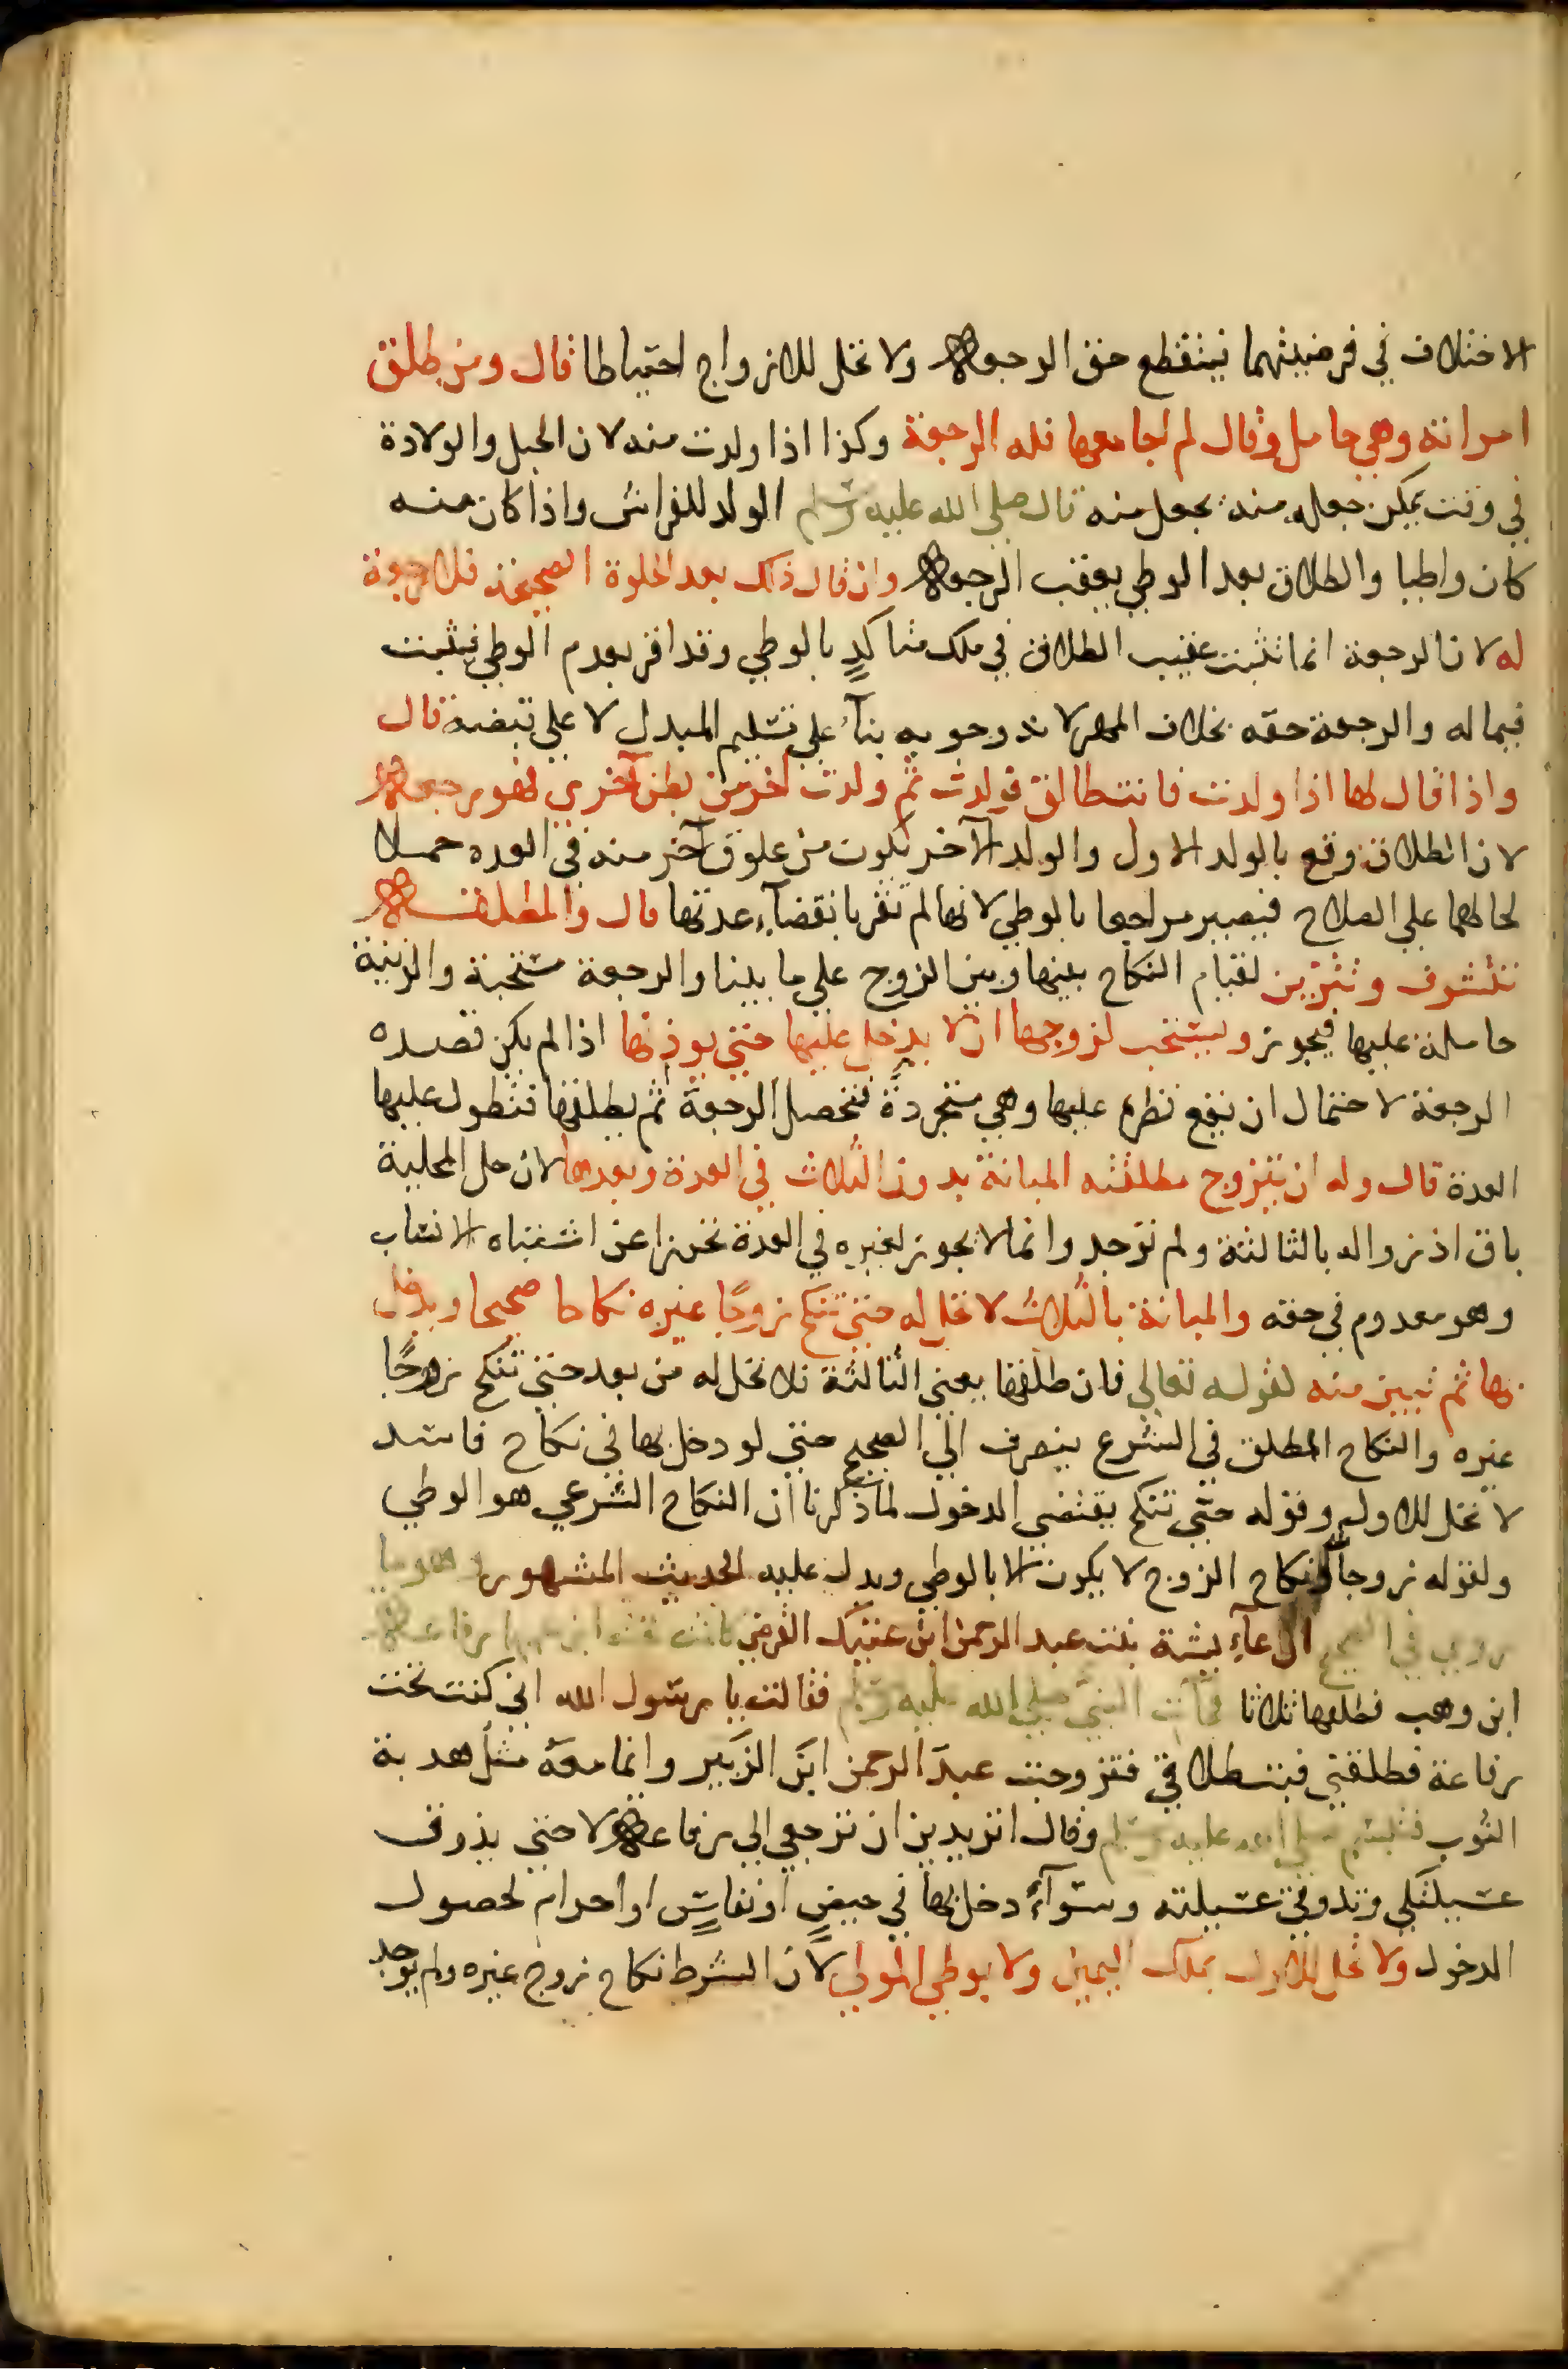 الاختلاف في فرضيتهما فينقطع حق الرجعة ولا تحل للازواج احتياطا قال ومن طلق
امراته وهي حامل وقال لم اجامعها فله الرجعة وكذا اذا ولدت منه لان الحبل والولادة
في وقت يمكن جعله منه يجعل منه قال صلى الله عليه وسلم الولد للفراش واذا كان منه
كان واطيا والطلاق بعد الوطي يعقب الرجعة وان قال ذلك بعد الخلوة الصحيحة فلا رجعة
له لان الرجعة انما تثبت عقيب الطلاق في ملك متاكدٍ بالوطي وقد اقر بعدم الوطي فيثبت
فيما له والرجعة حقه بخلاف المهر لان وجوبه بنآء على تسليم المبدل لا على قبضه قال
واذا قال لها اذا ولدت فانت طالق فولدت ثم ولدت اخر من بطن آخري فهو رجعة
لان الطلاق وقع بالولد الاول والولد الآخر يكون من علوق آخر منه في العده حملا
لحالهما على الصلاح فيصير مراجعا بالوطي لانها لم تقر بانقضآء عدتها قال والمطلقة
تتشوف وتتزين لقيام النكاح بينها وبين الزوج على ما بينا والرجعة مستحبة والزينة
حاملة عليها فيجوز ويستحب لزوجها ان لا يدخل عليها حتى يوذنها اذا لم يكن قصده
الرجعة لاحتمال ان يقع نظره عليها وهي متجردة فتحصل الرجعة ثم يطلقها فتطول عليها
العدة قال وله ان يتزوج مطلقته المبانة بدون الثلاث في العدة وبعدها لان حل المحلية
باق اذ زواله بالثالثة ولم توجد وانما لا يجوز لغيره في العدة تحرزا عن اشتباه الانساب
وهو معدوم في حقه والمبانة بالثلاث لا تحل له حتى تنكح زوجًا غيره نكاحا صحيحا ويدخل
بها ثم تبين منه لقوله تعالى فان طلقها يعني الثالثة فلا تحل له من بعد حتى تنكح زوجًا
غيره والنكاح المطلق في الشرع ينصرف الي الصحيح حتى لو دخل بها في نكاح فاسد
لا تحل للاول وقوله حتى تنكح يقتضي الدخول لما ذكرنا ان النكاح الشرعي هو الوطي
ولقوله زوجا ونكاح الزوج لا يكون الا بالوطي ويدل عليه الحديث المشهور وهو ما
روي في الصحيح ان عآيشة بنت عبد الرحمن ابن عتيك القرضي كانت تحت ابن عمها رفاعة
ابن وهب فطلقها ثلاثا فجآت النبي صلى الله عليه وسلم فقالت يا رسول الله اني كنت تحت
رفاعة فطلقني فبت طلاقي فتزوجت عبدَ الرحمن ابنَ الزَبير وانما معه مثل هدبة
الثوب فتبسم صلى الله عليه وسلم وقال اتريدين ان ترجعي الى رفاعة لا حتى يذوق
عسيلتكي وتذوقي عسيلته وسوآءٌ دخل بها في حيضٍ او نفاسٍ او احرام لحصول
الدخول ولا تحل للاول بملك اليمين ولا بوطي المولي لان الشرط نكاح زوج غيره ولم يوجد